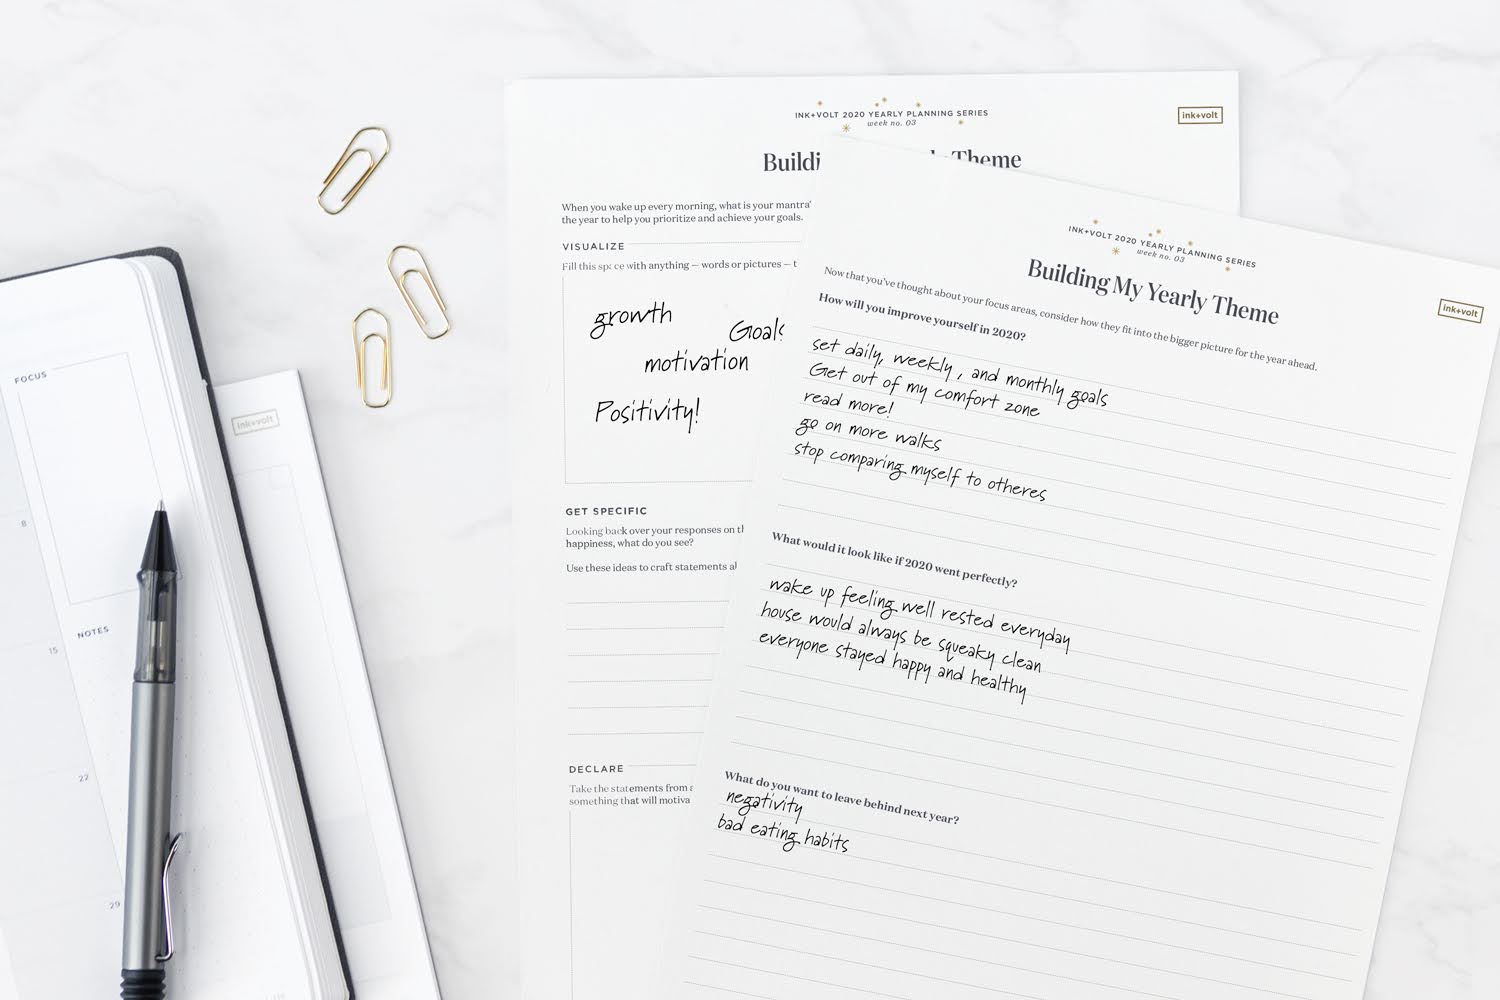 INK+VOLT 2020 YEARLY PLANNING SERIES
week no. 03
ink+volt
Theme
When you wake up every morning, what is your mantra
the year to help you prioritize and achieve your goals.
VISUALIZE
Fill this space with anything – words or pictures –
growth
Goals
motivation
Positivity!
GET SPECIFIC
Looking back over your responses on
happiness, what do you see?
Use these ideas to craft statements
DECLARE
Take the statements from
something that will
INK+VOLT 2020 YEARLY PLANNING SERIES
week no. 03
Building My Yearly Theme
ink+volt
Now that you've thought about your focus areas, consider how they fit into the bigger picture for the year ahead.
How will you improve yourself in 2020?
set daily, weekly, and monthly goals
Get out of my comfort zone
read more!
go on more walks
stop comparing myself to otheres
What would it look like if 2020 went perfectly?
wake up feeling well rested everyday
house would always be squeaky clean
everyone stayed happy and healthy
What do you want to leave behind next year?
negativity
bad eating habits
FOCUS
8
NOTES
15
22
29
ink+volt